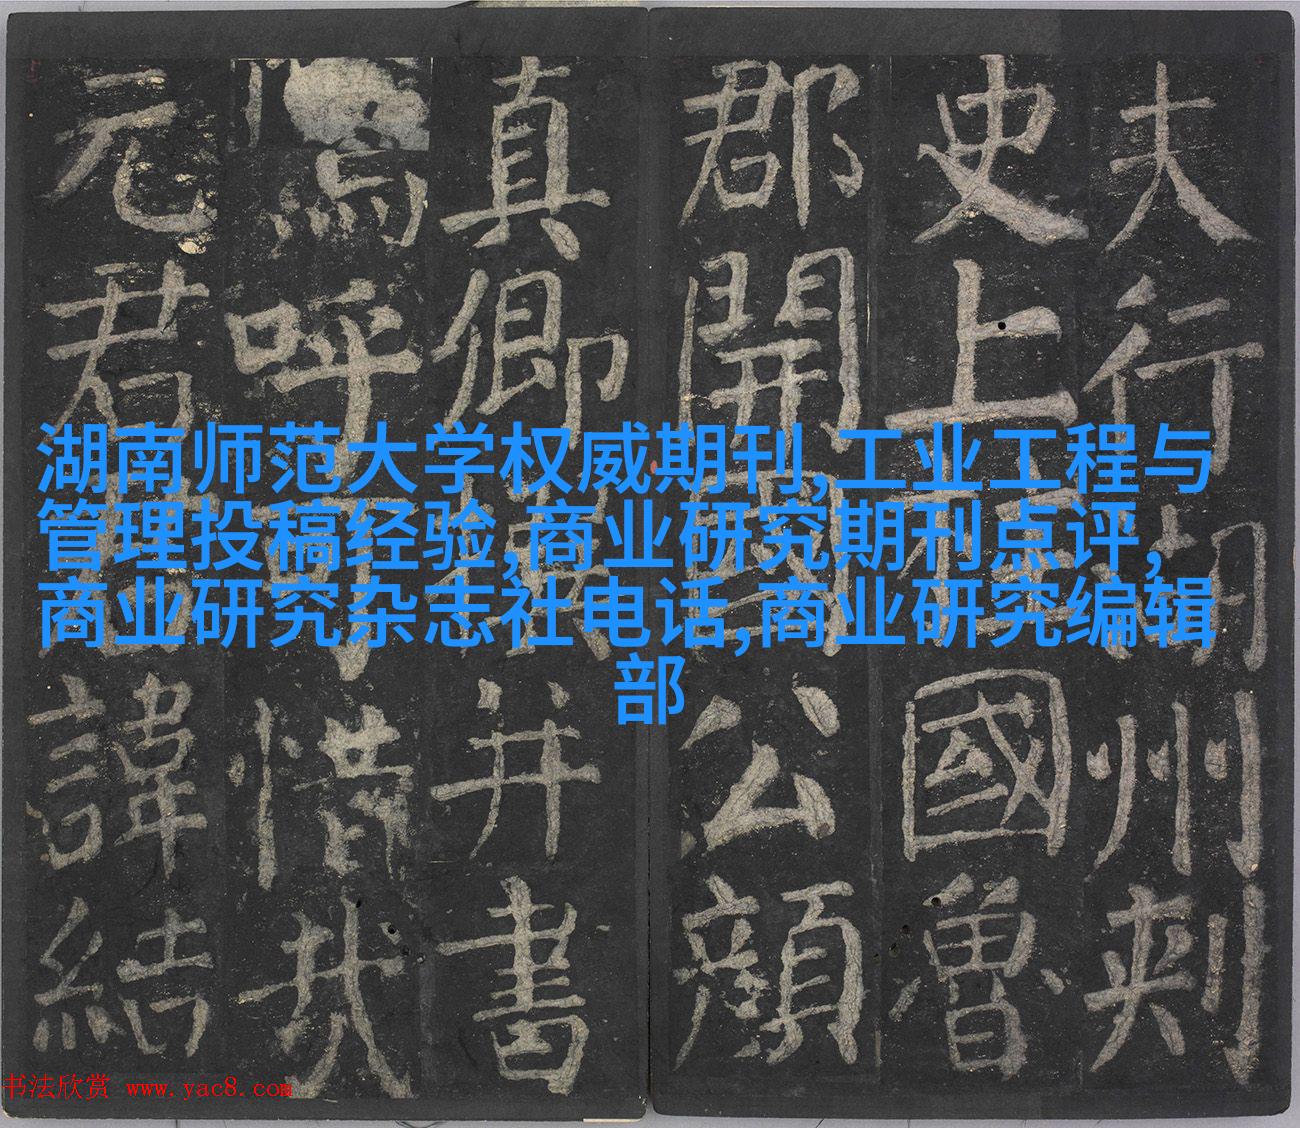 夫行湖州刺
史上柱國魯
郡開國公顔
真卿撰并書
嗚呼可惜哉
元君君諱結
湖南师范大学权威期刊,工业工程与
管理投稿经验,商业研究期刊点评,
商业研究杂志社电话,商业研究编辑
部
书法欣赏 www.yac8.com